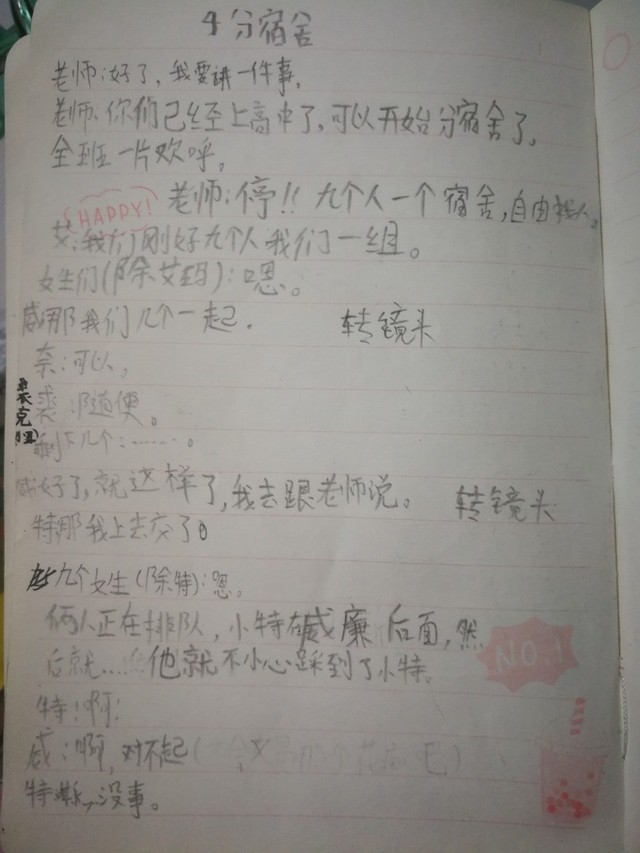 4 分宿舍
老师:好了,我要讲一件事,
老师:你们已经上高中了,可以开始分宿舍了,
全班一片欢呼。
HAPPY! 老师:停!! 九个人一个 宿舍,自由找人。
艾:我们刚好九个人 我们一组。
女生们(除艾玛):嗯。
威:那我们几个一起. 转镜头
奈:可以,
裘克 裘:随便。
剩下几个:……。
威:好了,就这样了,我去跟老师说。 转镜头
特:那我上去交了。
九个女生(除特):嗯。
俩人正在排队,小特在威廉后面,然
后就……他就不小心踩到了小特。
NO.1
特:啊!
威:啊,对不起(
特:嘶,没事。